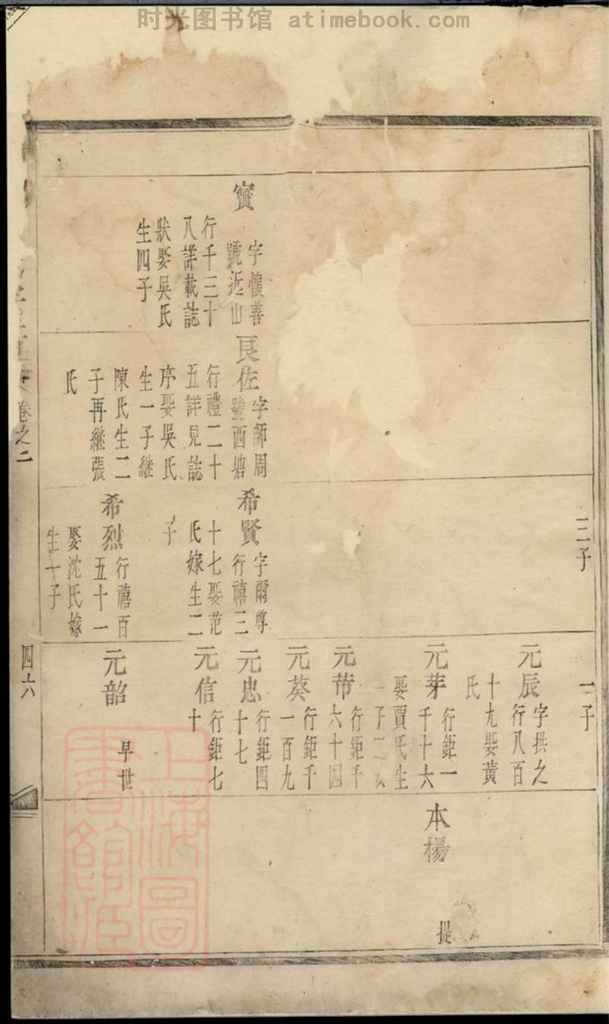 时光图书馆 atimebook.com
三子
一子
實
字懷善
號近山
行千三十
八譜載誌
狀娶吳氏
生四子
良佐
字師周
號酉塘
行禮二十
五詳見誌
序娶吳氏
生一子繼
陳氏生二
子再繼張
氏
希賢
字爾尊
行禧三
十七娶范
氏嫁生二
子
希烈
行禧百
五十一
娶沈氏嫁
生一子
元辰
字拱之
行八百
十九娶黃
氏
元芽
行鉅一
千十六
娶賈氏生
元芾
行鉅千
六十四
元葵
行鉅千
一百九
元忠
行鉅四
十七
元信
行鉅七
十
元韶
早世
本楊
提
卷之二
四六